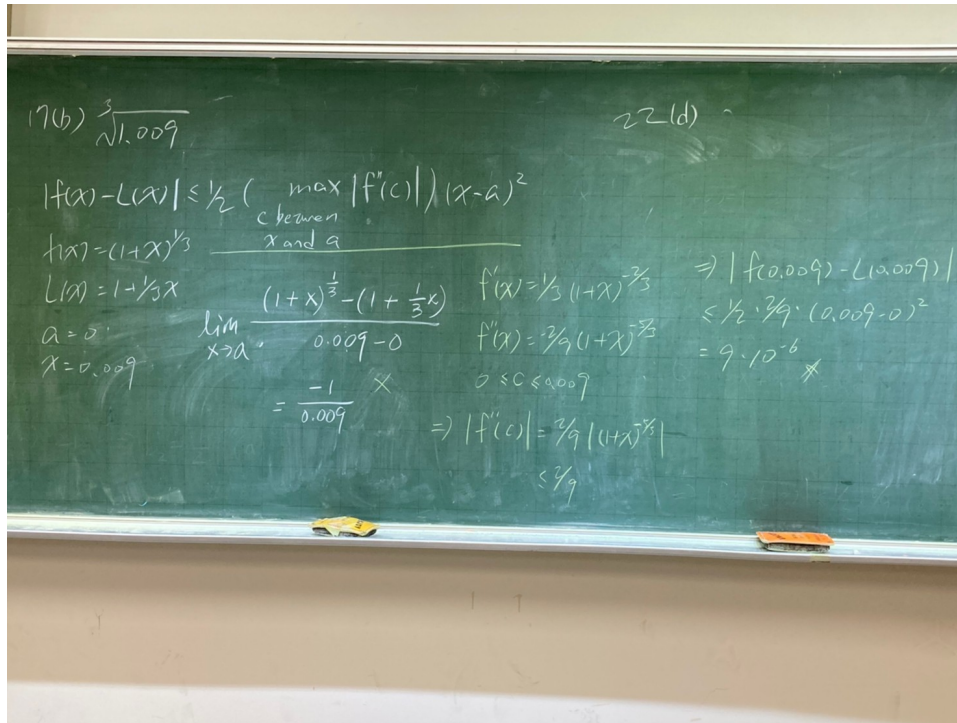 17(b) ∛1.009
|f(x)-L(x)| ≤ 1/2 ( max |f''(c)| ) (x-a)²
c between
x and a
f(x)=(1+x)^1/3
L(x)=1+1/3x
a=0
x=0.009
lim x→a ((1+x)^1/3 - (1+1/3x)) / (0.009-0)
= -1/0.009 ×
f'(x)=1/3(1+x)^-2/3
f''(x)=-2/9(1+x)^-5/3
0 ≤ c ≤ 0.009
⇒ |f''(c)| = 2/9 |(1+x)^-5/3|
≤ 2/9
22(d)
⇒ |f(0.009)-L(0.009)|
≤ 1/2 · 2/9 · (0.009-0)²
= 9·10^-6